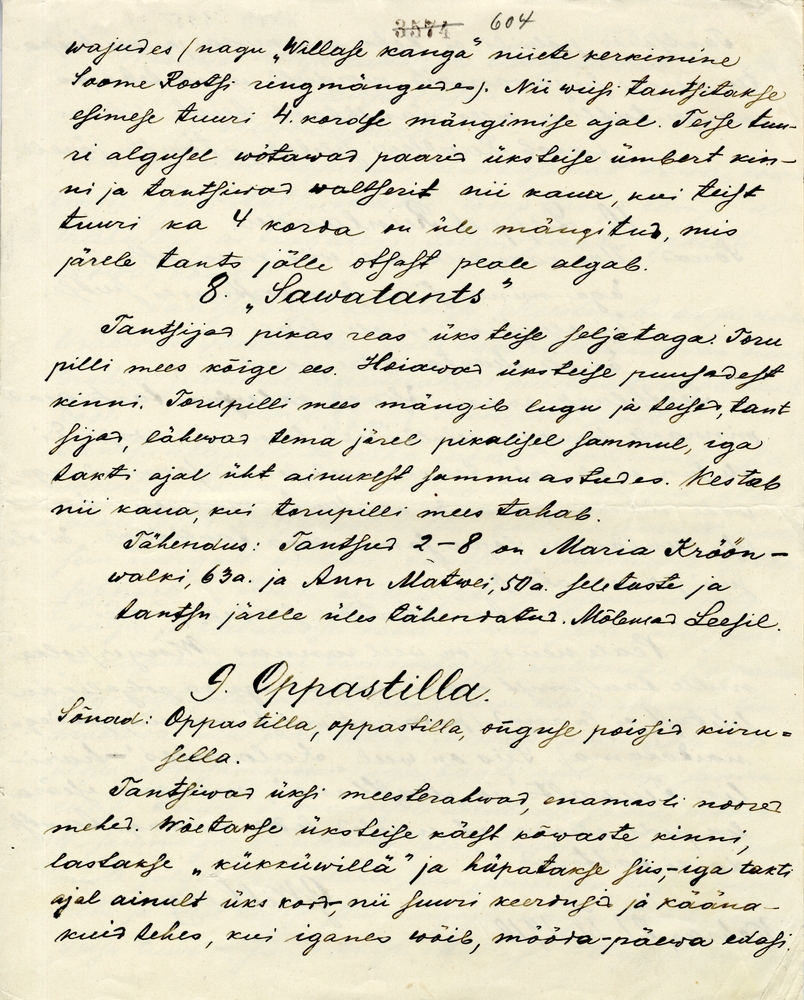 3574 604
wajudes (nagu „Willase kanga" niiete kerkimine
Soome Rootsi ringmängudes). Nii wiisi tantsitakse
esimese tuuri 4. kordse mängimise ajal. Teise tuu-
ri algusel wõtawad paarid üksteise ümbert kin-
ni ja tantsiwad waltserit nii kaua, kui teist
tuuri ka 4 korda on üle mängitud, mis
järele tants jälle otsast peale algab.
8. „Sawatants"
Tantsijad pikas reas üksteise seljataga. Toru
pilli mees kõige ees. Hoiawad üksteise puusadest
kinni. Torupilli mees mängib lugu ja teised, tant
sijad, lähewad tema järel pikalisel sammul, iga
takti ajal üht ainukest sammu astudes. Kestab
nii kaua, kui torupilli mees tahab.
Tähendus: Tantsud 2-8 on Maria Kröön-
walki, 63a. ja Ann Matwei, 50a. seletuste ja
tantsu järele üles tähendatud. Mõlemad Leesil.
9. Oppastilla.
Sõnad: Oppastilla, oppastilla, õiguse poissid kiiru=
sella.
Tantsiwad üksi meesterahwad, enamasti noored
mehed. Wõetakse üksteise käest kõwaste kinni,
lastakse „kükküwillä" ja hüpatakse siis, - iga takti
ajal ainult üks kord, - nii suuri keerdusid ja kääna-
kuid tehes, kui iganes wõib, mööda-päewa edasi.